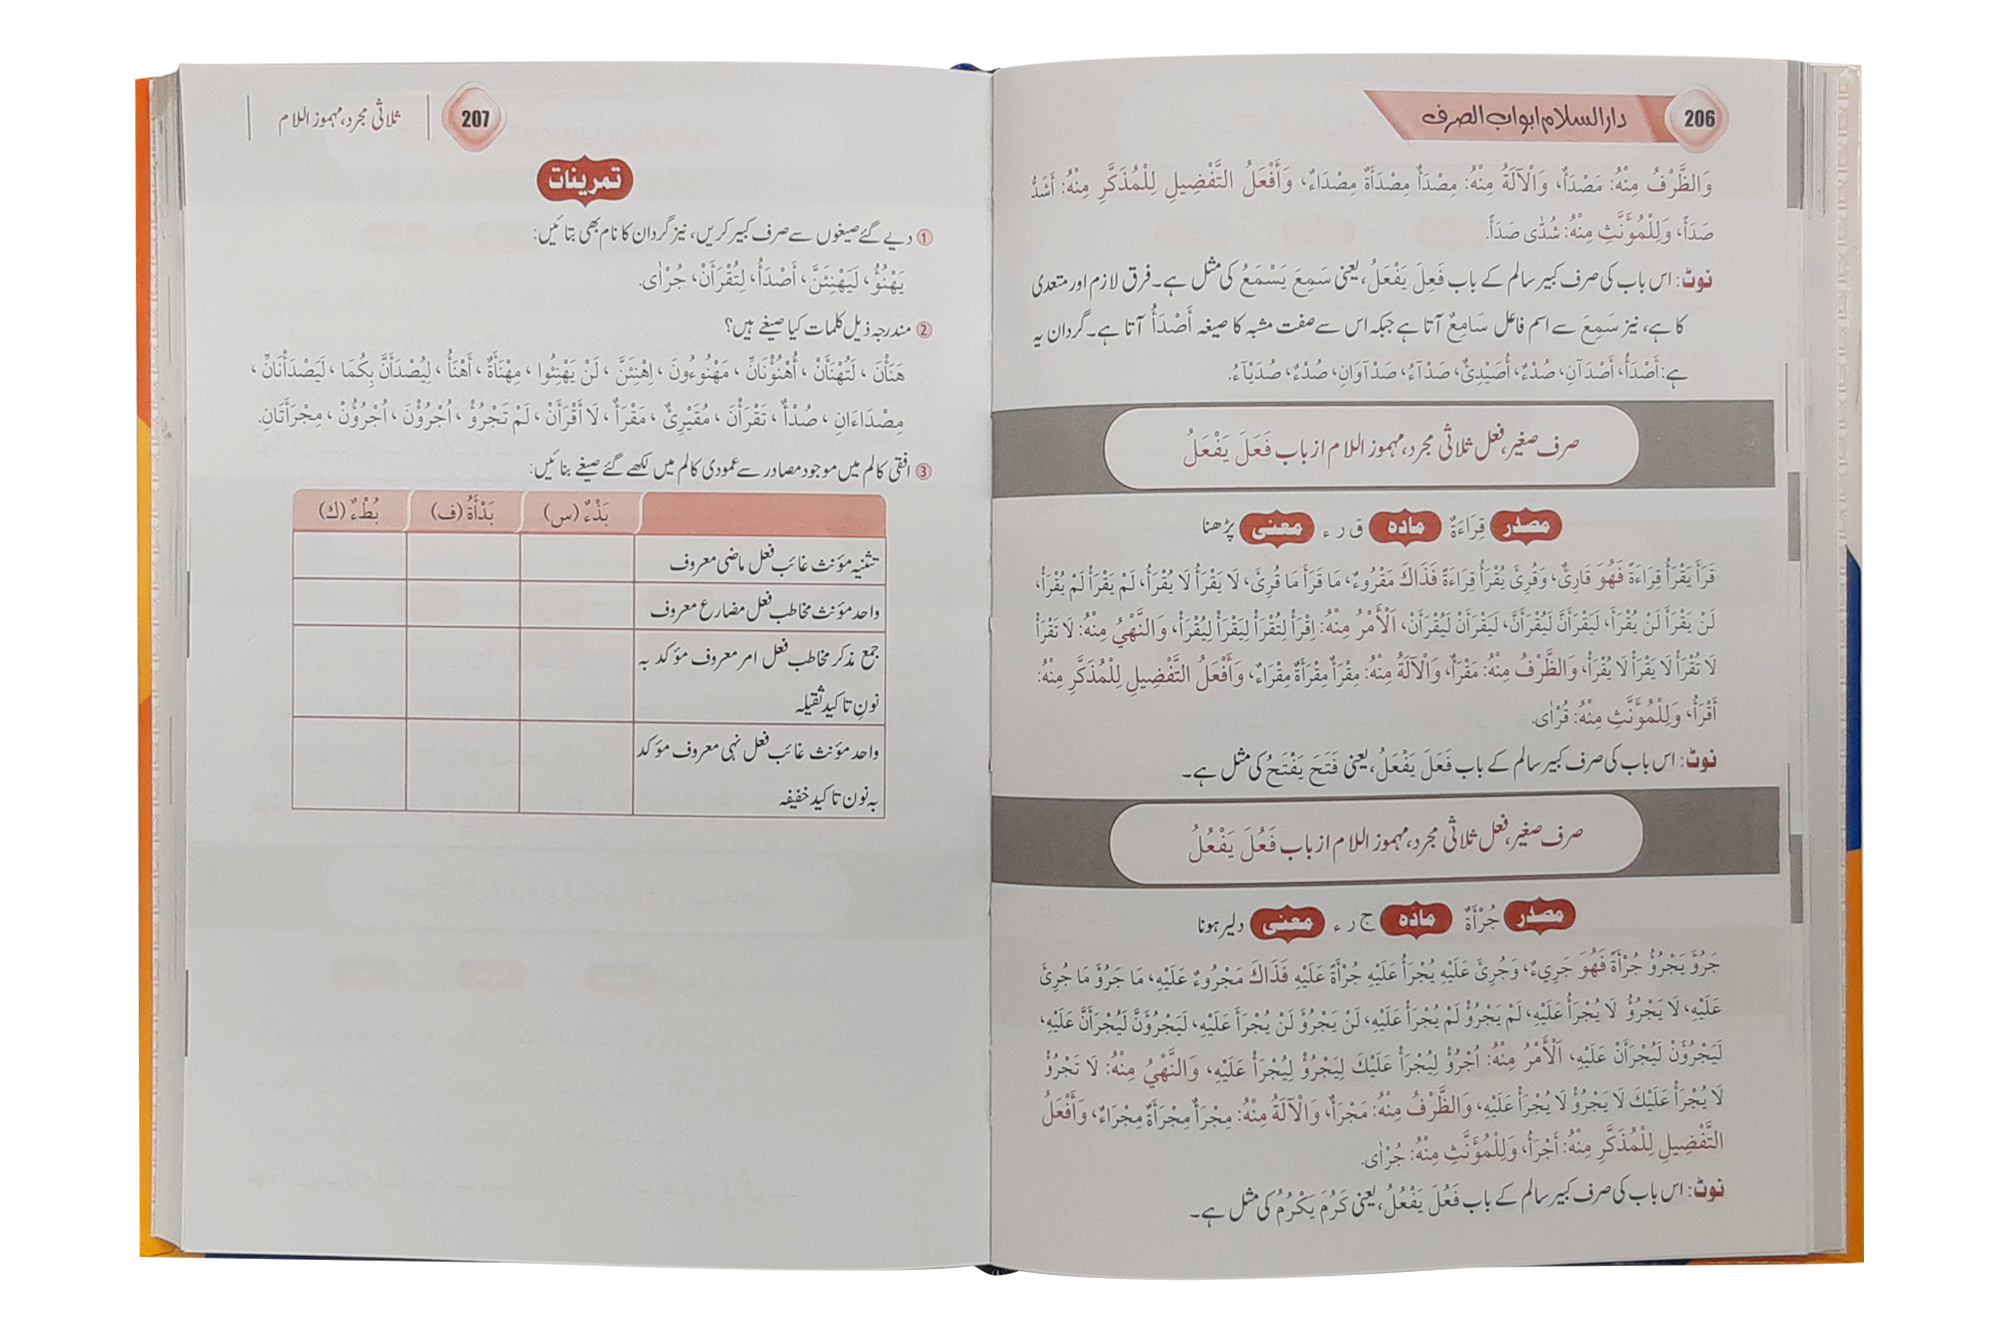 206
دارالسلام ابواب الصرف
وَالظَّرْفُ مِنْهُ: مَصْدَأٌ، وَالْآلَةُ مِنْهُ: مِصْدَأٌ مِصْدَأَةٌ مِصْدَاءٌ، وَأَفْعَلُ التَّفْضِيلِ لِلْمُذَكَّرِ مِنْهُ: أَشَدُّ
صَدَأً، وَلِلْمُؤَنَّثِ مِنْهُ: شُدّٰى صَدَأً.
نوٹ: اس باب کی صرف کبیر سالم کے باب فَعِلَ يَفْعَلُ، یعنی سَمِعَ يَسْمَعُ کی مثل ہے۔ فرق لازم اور متعدی
کا ہے، نیز سَمِعَ سے اسم فاعل سَامِعٌ آتا ہے جبکہ اس سے صفت مشبہ کا صیغہ أَصْدَأُ آتا ہے۔ گردان یہ
ہے: أَصْدَأُ، أَصْدَآنِ، صُدْءٌ، أُصَيْدِئٌ، صَدْآءُ، صَدْآوَانِ، صُدْءٌ، صُدَيْآءُ.
صرف صغیر، فعل ثلاثی مجرد، مہموز اللام از باب فَعَلَ يَفْعَلُ
مصدر قِرَاءَةٌ مادہ ق ر ء معنی پڑھنا
قَرَأَ يَقْرَأُ قِرَاءَةً فَهُوَ قَارِئٌ، وَقُرِئَ يُقْرَأُ قِرَاءَةً فَذَاكَ مَقْرُوءٌ، مَا قَرَأَ مَا قُرِئَ، لَا يَقْرَأُ لَا يُقْرَأُ، لَمْ يَقْرَأْ لَمْ يُقْرَأْ،
لَنْ يَقْرَأَ لَنْ يُقْرَأَ، لَيَقْرَأَنَّ لَيُقْرَأَنَّ، لَيَقْرَأَنْ لَيُقْرَأَنْ، اَلْأَمْرُ مِنْهُ: اِقْرَأْ لِتُقْرَأْ لِيَقْرَأْ لِيُقْرَأْ، وَالنَّهْيُ مِنْهُ: لَا تَقْرَأْ
لَا تُقْرَأْ لَا يَقْرَأْ لَا يُقْرَأْ، وَالظَّرْفُ مِنْهُ: مَقْرَأٌ، وَالْآلَةُ مِنْهُ: مِقْرَأٌ مِقْرَأَةٌ مِقْرَاءٌ، وَأَفْعَلُ التَّفْضِيلِ لِلْمُذَكَّرِ مِنْهُ:
أَقْرَأُ، وَلِلْمُؤَنَّثِ مِنْهُ: قُرْاٰى.
نوٹ: اس باب کی صرف کبیر سالم کے باب فَعَلَ يَفْعَلُ، یعنی فَتَحَ يَفْتَحُ کی مثل ہے۔
صرف صغیر، فعل ثلاثی مجرد، مہموز اللام از باب فَعُلَ يَفْعُلُ
مصدر جُرْأَةٌ مادہ ج ر ء معنی دلیر ہونا
جَرُؤَ يَجْرُؤُ جُرْأَةً فَهُوَ جَرِيءٌ، وَجُرِئَ عَلَيْهِ يُجْرَأُ عَلَيْهِ جُرْأَةً عَلَيْهِ فَذَاكَ مَجْرُوءٌ عَلَيْهِ، مَا جَرُؤَ مَا جُرِئَ
عَلَيْهِ، لَا يَجْرُؤُ لَا يُجْرَأُ عَلَيْهِ، لَمْ يَجْرُؤْ لَمْ يُجْرَأْ عَلَيْهِ، لَنْ يَجْرُؤَ لَنْ يُجْرَأَ عَلَيْهِ، لَيَجْرُؤَنَّ لَيُجْرَأَنَّ عَلَيْهِ،
لَيَجْرُؤَنْ لَيُجْرَأَنْ عَلَيْهِ، اَلْأَمْرُ مِنْهُ: اُجْرُؤْ لِيُجْرَأْ عَلَيْكَ لِيَجْرُؤْ لِيُجْرَأْ عَلَيْهِ، وَالنَّهْيُ مِنْهُ: لَا تَجْرُؤْ
لَا يُجْرَأْ عَلَيْكَ لَا يَجْرُؤْ لَا يُجْرَأْ عَلَيْهِ، وَالظَّرْفُ مِنْهُ: مَجْرَأٌ، وَالْآلَةُ مِنْهُ: مِجْرَأٌ مِجْرَأَةٌ مِجْرَاءٌ، وَأَفْعَلُ
التَّفْضِيلِ لِلْمُذَكَّرِ مِنْهُ: أَجْرَأُ، وَلِلْمُؤَنَّثِ مِنْهُ: جُرْاٰى.
نوٹ: اس باب کی صرف کبیر سالم کے باب فَعُلَ يَفْعُلُ، یعنی كَرُمَ يَكْرُمُ کی مثل ہے۔
207
ثلاثی مجرد، مہموز اللام
تمرینات
① دیے گئے صیغوں سے صرف کبیر کریں، نیز گردان کا نام بھی بتائیں:
يَهْنُؤُ، لَيَهْنِئَنَّ، أَصْدَأُ، لِتُقْرَأَنْ، جُرْاٰى.
② مندرجہ ذیل کلمات کیا صیغے ہیں؟
هَنَأْنَ، لَتُهْنَأَنْ، أُهْنُؤْنَانِّ، مَهْنُوءُونَ، اِهْنِئَنَّ، لَنْ يَهْنِئُوا، مِهْنَأَةٌ، أَهْنَأُ، لِيُصْدَأَنَّ بِكُمَا، لَيَصْدَأْنَانِّ،
مِصْدَاءَانِ، صُدْأٌ، تَقْرَأْنَ، مُقَيْرِئٌ، مَقْرَأٌ، لَا أَقْرَأَنْ، لَمْ تَجْرُؤْ، اُجْرُؤْنَ، اُجْرُؤُنْ، مِجْرَأَتَانِ.
③ افقی کالم میں موجود مصادر سے عمودی کالم میں لکھے گئے صیغے بنائیں:
بَذْءٌ (س) بَدْأَةٌ (ف) بُطْءٌ (ك)
تثنیہ مؤنث غائب فعل ماضی معروف
واحد مؤنث مخاطب فعل مضارع معروف
جمع مذکر مخاطب فعل امر معروف مؤکد بہ
نونِ تاکید ثقیلہ
واحد مؤنث غائب فعل نہی معروف مؤکد
بہ نون تاکید خفیفہ